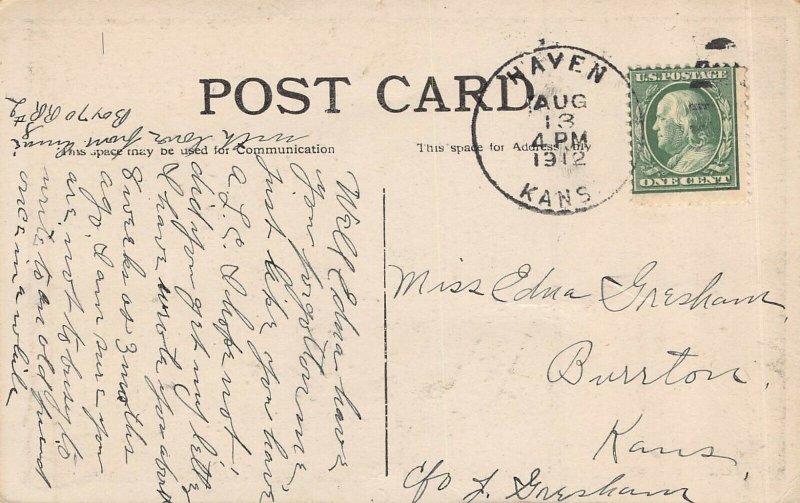 POST CARD
This space may be used for Communication
This space for Address Only
HAVEN
AUG
13
4 PM
1912
KANS
U.S. POSTAGE
ONE CENT
Miss Edna Gresham,
Burrton,
Kans,
c/o J. Gresham
Well Edna have
you forgotten me,
Just like you have
a L.C. I hope not!
did you get my letter
I have wrote you about
8 weeks or 3 months
ago, I am sure you
are not to busy to
write to an old friend
once in a while
with love from
Box 70 RR #2